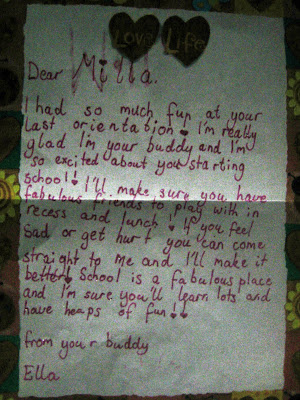 Love Life
Dear Milla.
I had so much fun at your
last orientation! I'm really
glad I'm your buddy and I'm
so excited about you starting
school! I'll make sure you have
fabulous friends to play with in
recess and lunch! If you feel
Sad or get hurt you can come
straight to me and I'll make it
better! School is a fabulous place
and I'm sure you'll learn lots and
have heaps of fun!!
from your buddy
Ella